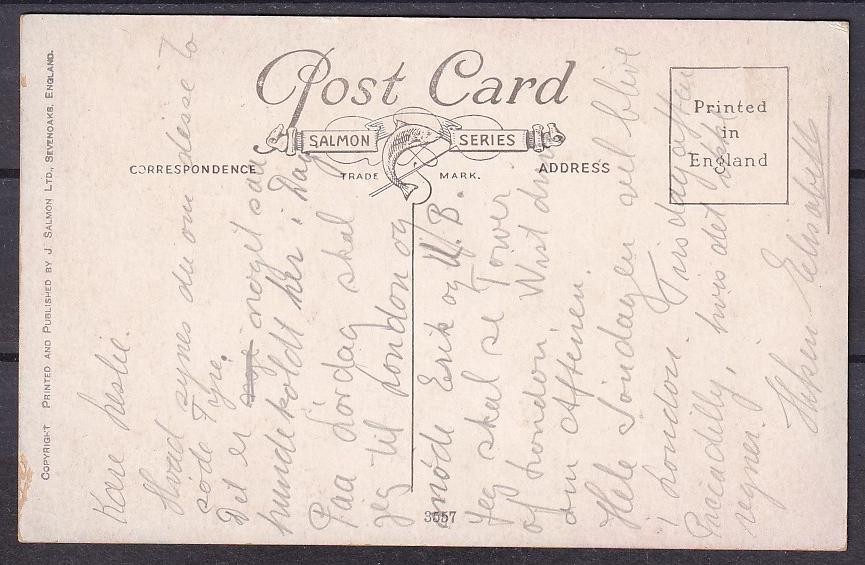 COPYRIGHT PRINTED AND PUBLISHED BY J. SALMON LTD., SEVENOAKS, ENGLAND.
Post Card
SALMON SERIES
TRADE MARK.
CORRESPONDENCE
ADDRESS
Printed
in
England
3557
Kære Leslie.
Hvad synes du om disse to
søde Fyre.
Det er noget saa
hundekoldt her i Dag
Paa Lördag skal
jeg til London og
möde Erik og W. B.
Jeg skal se Tower
of London
om Aftenen.
Hele Söndagen vel blive
i London. Tirsdag aften
Piccadelly, hvis det ikke
regner.
Elisabeth